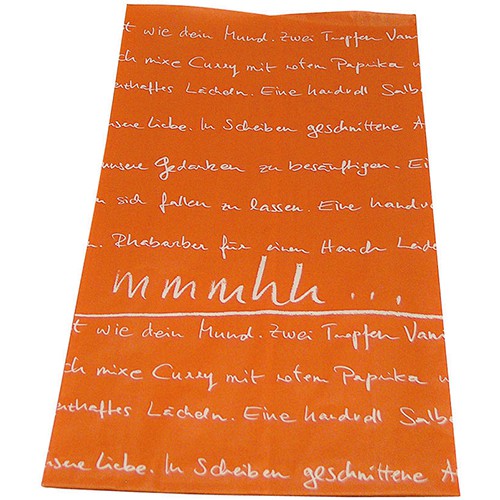 t wie dein Mund. Zwei Tropfen Van
ch mixe Curry mit roten Paprika u
enthaftes Lächeln. Eine handvoll Salb
nsere Liebe. In Scheiben geschnittene A
unsere Gedanken zu besänftigen. Ei
n sich fallen zu lassen. Eine handvo
n. Rhabarber für einen Hauch Leide
mmmhh...
t wie dein Mund. Zwei Tropfen Vani
ch mixe Curry mit roten Paprika u
enthaftes Lächeln. Eine handvoll Salbe
nsere Liebe. In Scheiben geschnittene A